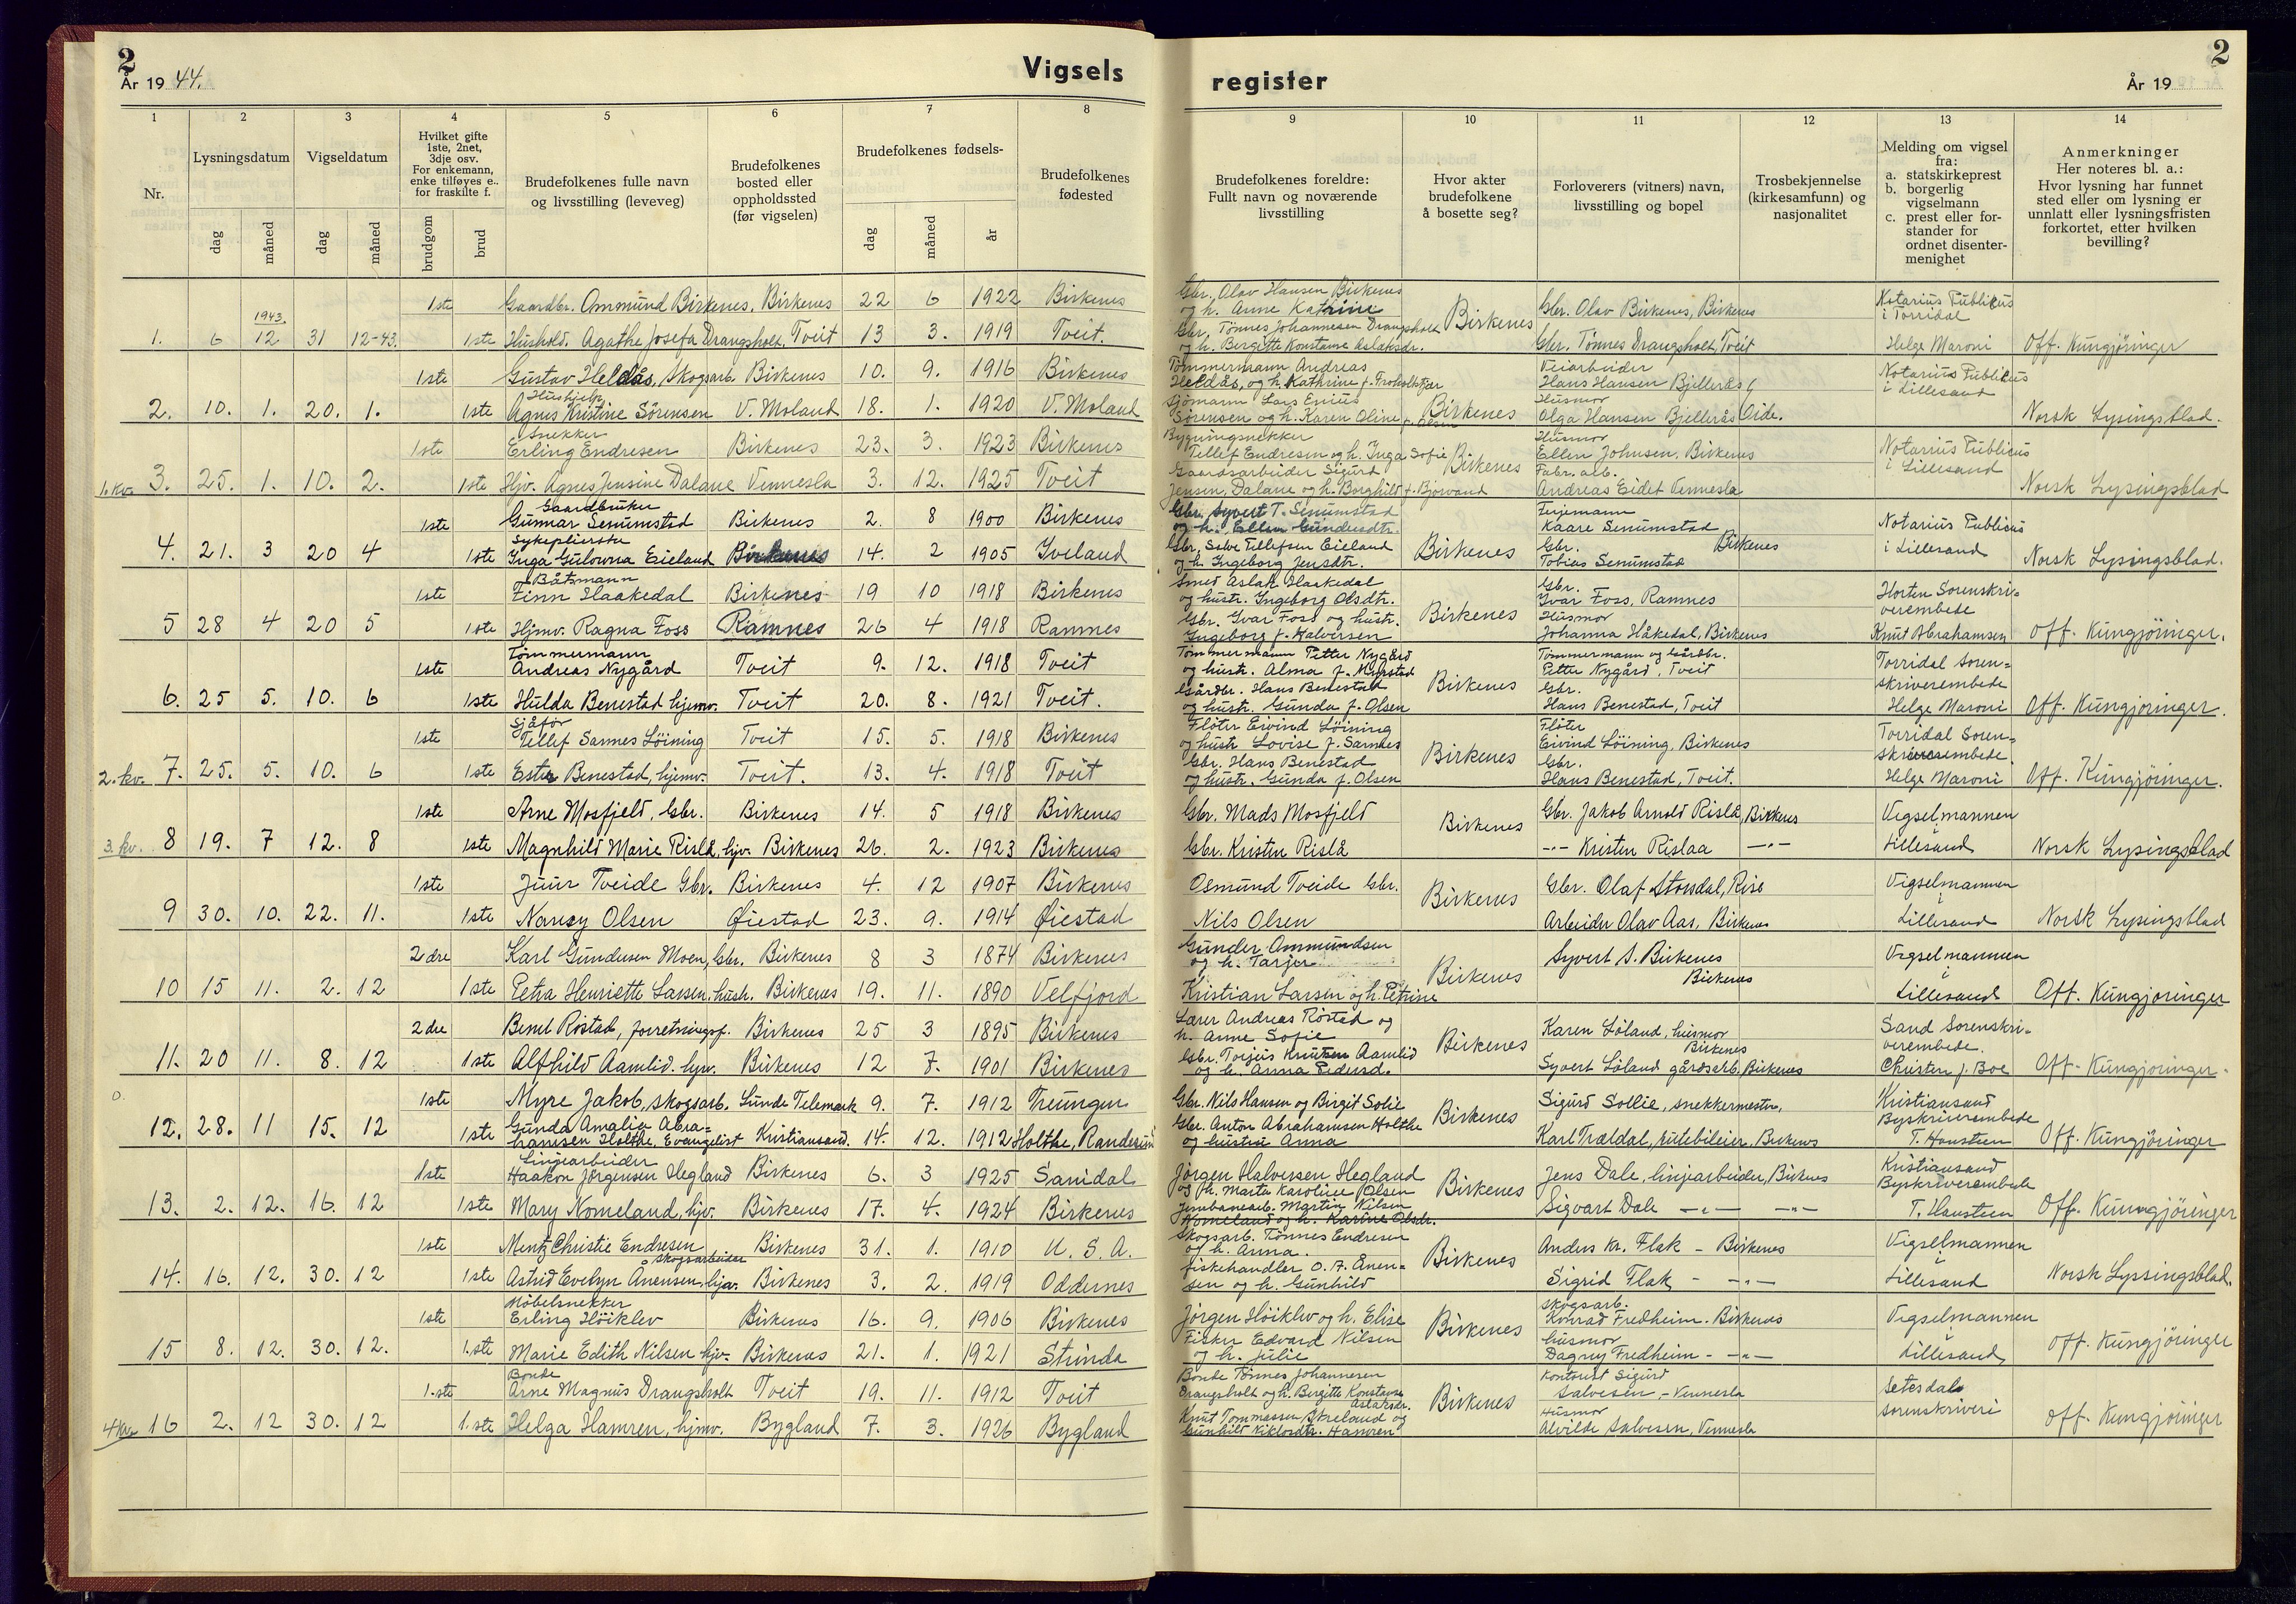 2
År 1944.
Vigsels
register
År 19
2
1
2
3
4
5
6
7
8
9
10
11
12
13
14
Nr.
Lysningsdatum
Vigseldatum
Hvilket gifte
1ste, 2net,
3dje osv.
For enkemann,
enke tilføyes e..
for fraskilte f.
Brudefolkenes fulle navn
og livsstilling (leveveg)
Brudefolkenes
bosted eller
oppholdssted
(før vigselen)
Brudefolkenes fødsels-
Brudefolkenes
fødested
Brudefolkenes foreldre:
Fullt navn og noværende
livsstilling
Hvor akter
brudefolkene
å bosette seg?
Forloverers (vitners) navn,
livsstilling og bopel
Trosbekjennelse
(kirkesamfunn) og
nasjonalitet
Melding om vigsel
fra:
a. statskirkeprest
b. borgerlig
vigselmann
c. prest eller for-
stander for
ordnet disenter-
menighet
Anmerkninger
Her noteres bl. a.:
Hvor lysning har funnet
sted eller om lysning er
unnlatt eller lysningsfristen
forkortet, etter hvilken
bevilling?
dag
måned
dag
måned
brudgom
brud
dag
måned
år
1ste Gaardbr. Ommund Birkenes, Birkenes 22 6 1922 Birkenes
1. 6 1943. 12 31 12-43. 1ste Hushold. Agathe Josefa Drangsholt. Tveit 13 3. 1919 Tveit.
Gbr. Olav Hansen Birkenes
og h. Anne Katrine
Gbr. Tönnes Johannesen Drangsholt
og h. Bergitte Konstanse Aslaksdr.
Birkenes
Gbr. Olav Birkenes, Birkenes
Gbr. Tönnes Drangsholt, Tveit
Notarius Publicus
i Torridal
Helge Maroni
Off. Kungjöringer
1ste Gustav Heldås, Skogsarb. Birkenes 10. 9. 1916 Birkenes
Hushjelp
2. 10. 1. 20. 1. 1ste Agnes Kristine Sörensen V. Moland 18. 1. 1920 V. Moland
Tömmermann Andreas
Heldås, og h. Kathrine f.
Sjömann Lars Enius
Sörensen og h. Karen Oline f. Olsen
Birkenes
Veiarbeider
Hans Hansen Bjellerås
Husmor
Olga Hansen Bjellerås Eide.
Notarius Publicus
i Lillesand
Norsk Lysingsblad.
Snekker
1ste Erling Endresen Birkenes 23. 3. 1923 Birkenes
1. kv. 3. 25. 1. 10. 2. 1ste Hjv. Agnes Jensine Dalane Vennesla 3. 12. 1925 Tveit
Bygningsnekker
Tellef Endresen og h. Inga Sofie
Gaardsarbeider Sigurd
Jensen, Dalane og h. Borghild f. Bjorvand
Birkenes
Husmor
Ellen Johnsen, Birkenes
Fabr. arb.
Andreas Eidet Vennesla
Notarius Publicus
i Lillesand
Norsk Lysingsblad
Gaardbruker
1ste Gunnar Senumstad Birkenes 2. 8 1900 Birkenes
Sykepleierske
4. 21. 3 20 4 1ste Inga Gulovna Eieland Birkenes 14. 2 1905 Iveland
Gbr. Syvert T. Senumstad
og h. Ellen Gundersdtr.
Gbr. Salve Tellefsen Eieland
og h. Ingeborg Jensdtr.
Birkenes
Feriemann
Kaare Senumstad
Gbr. Birkenes
Tobias Senumstad
Notarius Publicus
i Lillesand
Norsk Lysingsblad.
Båtsmann
1ste Finn Haakedal Birkenes 19 10 1918 Birkenes
5 28 4 20 5 1ste Hjmv. Ragna Foss Ramnes 26 4 1918 Ramnes
Smed Aslak Haakedal
og hustr. Ingeborg Olsdtr.
Gbr. Ivar Foss og hustr.
Ingeborg f. Halvorsen
Birkenes
Gbr.
Ivar Foss, Ramnes
Husmor
Johanna Håkedal, Birkenes
Horten Sorenskri-
verembede
Knut Abrahamsen
Off. Kungjöringer.
Tömmermann
1ste Andreas Nygård Tveit 9. 12. 1918 Tveit
6. 25 5. 10. 6 1ste Hulda Benestad hjemv. Tveit 20. 8. 1921 Tveit.
Tömmermann Petter Nygård
og hustr. Alma f. Myrstad
Gårdbr. Hans Benestad
og hustr. Gunda f. Olsen
Birkenes
Tömmermann og Gårdbr.
Petter Nygård, Tveit
Gbr.
Hans Benestad, Tveit
Torridal Soren-
skriverembede
Helge Maroni
Off. Kungjöringer.
Sjåför
1ste Tellef Sannes Löining Tveit 15. 5. 1918 Birkenes
2. kv. 7. 25. 5. 10. 6 1ste Ester Benestad, hjemv. Tveit. 13. 4. 1918 Tveit
Flöter Eivind Löining
og hustr. Lovise f. Sannes
Gbr. Hans Benestad
og hustr. Gunda f. Olsen
Birkenes
Flöter
Eivind Löining, Birkenes
Gbr.
Hans Benestad, Tveit.
Torridal Soren-
skriverembede.
Helge Maroni
Off. Kungjöringer.
1ste Arne Mosfjeld, Gbr. Birkenes 14. 5 1918 Birkenes
3. kv. 8 19. 7 12. 8 1ste Magnhild Marie Rislå, hjv. Birkenes 26. 2. 1923 Birkenes
Gbr. Mads Mosfjeld
Gbr. Kristen Rislå
Birkenes
Gbr. Jakob Arnold Rislå, Birkenes
-"- Kristen Rislaa -"-
Vigselmannen
i
Lillesand
Norsk Lysingsblad
1ste Juur Tveide Gbr. Birkenes 4. 12 1907 Birkenes
9 30. 10. 22. 11. 1ste Nancy Olsen Øiestad 23. 9. 1914 Øiestad
Osmund Tveide Gbr.
Nils Olsen
Birkenes
Gbr. Olaf Stordal, Rise
Arbeider Olav Aas, Birkenes
Vigselmannen
i
Lillesand
Norsk Lysingsblad
2dre Karl Gundersen Moen, Gbr. Birkenes 8 3 1874 Birkenes
10 15 11. 2. 12 1ste Petra Henriette Larsen, hush. Birkenes 19. 11. 1890 Velfjord
Gunder Ommundsen
og h. Tarjer
Kristian Larsen og h. Petrine
Birkenes
Syvert S. Birkenes
Birkenes
Vigselmannen
i
Lillesand
Off. Kungjöringer
2dre Bernt Röstad, forretningsf. Birkenes 25 3 1895 Birkenes
11. 20 11. 8. 12 1ste Alfhild Aamlid. hjv. Birkenes 12 7. 1901 Birkenes
Lærer Andreas Röstad og
h. Anne Sofie
Gbr. Torjus Knutsen Aamlid
og h. Anna Pedersd.
Birkenes
Karen Löland, husmor
Birkenes
Syvert Löland gårdsarb. Birkenes
Sand Sorenskri-
verembede.
Christen J. Boe
Off. Kungjöringer.
1ste Myre Jakob, skogsarb. Lunde Telemark 9. 7. 1912 Treungen
12. 28. 11 15. 12 1ste Gunda Amalie Abra-
hamsen Holthe, Evangelist Kristiansand. 14. 12. 1912 Holthe, Randesund
Gbr. Nils Hansen og Birgit Solie
Gbr. Anton Abrahamsen Holthe
og hustru Anna
Birkenes
Sigurd Sollie, snekkermester,
Karl Trældal, rutebileier, Birkenes
Kristiansand
Byskriverembede
T. Haustun
Off. Kungjöringer
Linjearbeider
1ste Haakon Jörgensen Hegland Birkenes 6. 3 1925 Sanidal
13. 2. 12. 16. 12 1ste Mary Nomeland, hjv. Birkenes 17. 4. 1924 Birkenes
Jörgen Halvorsen Hegland
og h. Marta Karoline Olsen
Jernbanearb. Martin Nilsen
Nomeland og h. Karine Olsdr.
Birkenes
Jens Dale, linjearbeider, Birkenes
Sigvart Dale -"- -"-
Kristiansand
Byskriverembede
T. Haustun
Off. Kunngjöringer
1ste Mentz Christie Endresen Birkenes 31. 1. 1910 U. S. A.
skogsarbeider
14. 16. 12. 30. 12 1ste Astrid Evelyn Ånensen, hjv. Birkenes 3. 2. 1919 Oddernes
Skogsarb. Tönnes Endresen
og h. Anna.
fiskehandler O. T. Ånen-
sen og h. Gunhild
Birkenes
Anders Kr. Flak - Birkenes
Sigrid Flak - -"-
Vigselmannen
i
Lillesand
Norsk Lyssingsblad.
Möbelsnekker
1ste Erling Höiklev Birkenes 16. 9. 1906 Birkenes
15 8. 12. 30. 12. 1.ste Marie Edith Nilsen hjv. Birkenes 21. 1. 1921 Strinda
Jörgen Höiklev og h. Elise
Fisker Edvard Nilsen
og h. Julie
Birkenes
Skogsarb.
Konrad Fredheim. Birkenes
husmor
Dagny Fredheim - -"-
Vigselmannen
i
Lillesand
Off. Kungjöringer
Bonde
1.ste Arne Magnus Drangsholt Tveit 19. 11. 1912 Tveit
4 kv. 16 2. 12 30. 12 1.ste Helga Hamren, hjmv. Bygland 7. 3. 1926 Bygland
Bonde Tönnes Johannesen
Drangsholt og h. Bergitte Konstanse
Aslaksdr.
Knut Tommassen Skreland og
Gunhild Niklosdtr. Hamren
Birkenes
Kontorist Sigurd
Salvesen, - Vennesla
Husmor
Alvilde Salvesen, Vennesla
Setesdal
Sorenskriveri
Off. Kungjöringer